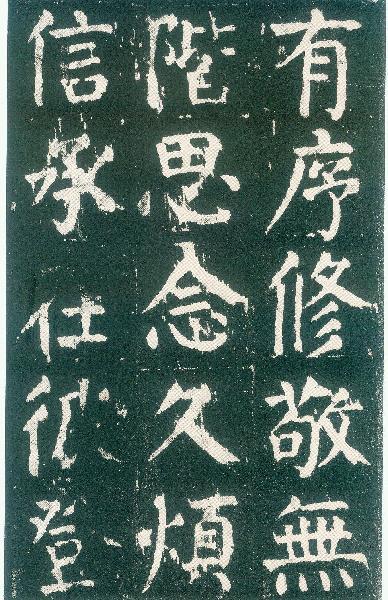 有序修敬無
階思念久煩
信承仕登